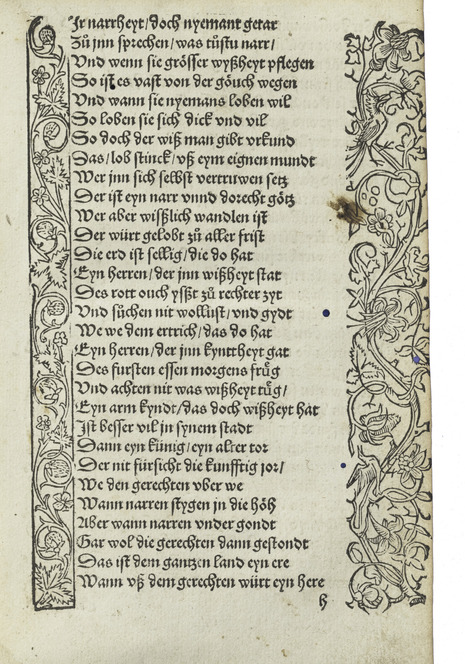 Jr narrheyt/doch nyemant getar
Zů jnn sprechen/was tůstu narr/
Vnd wenn sie grösser wyßheyt pflegen
So ist es vast von der göuch wegen
Vnd wann sie nyemans loben wil
So loben sie sich dick vnd vil
So doch der wiß man gibt vrkund
Das/lob stinck/vß eym eignen mundt
Wer jnn sich selbst vertruwen setz
Der ist eyn narr vnnd dorecht götz
Wer aber wißlich wandlen ist
Der würt gelobt zů aller frist
Die erd ist sellig/die do hat
Eyn herren/der jnn wißheyt stat
Des rott ouch yßßt zů rechter zyt
Vnd sůchen nit wollust/vnd gydt
We we dem ertrich/das do hat
Eyn herren/der jnn kynttheyt gat
Des fursten essen morgens frůg
Vnd achten nit was wißheyt tůg/
Eyn arm kyndt/das doch wißheyt hat
Jst besser vil jn synem stadt
Dann eyn künig/eyn alter tor
Der nit fürsicht die kunfftig jor/
We den gerechten vber we
Wann narren stygen jn die höh
Aber wann narren vnder gondt
Gar wol die gerechten dann gestondt
Das ist dem gantzen land eyn ere
Wann vß dem gerechten würt eyn here
h